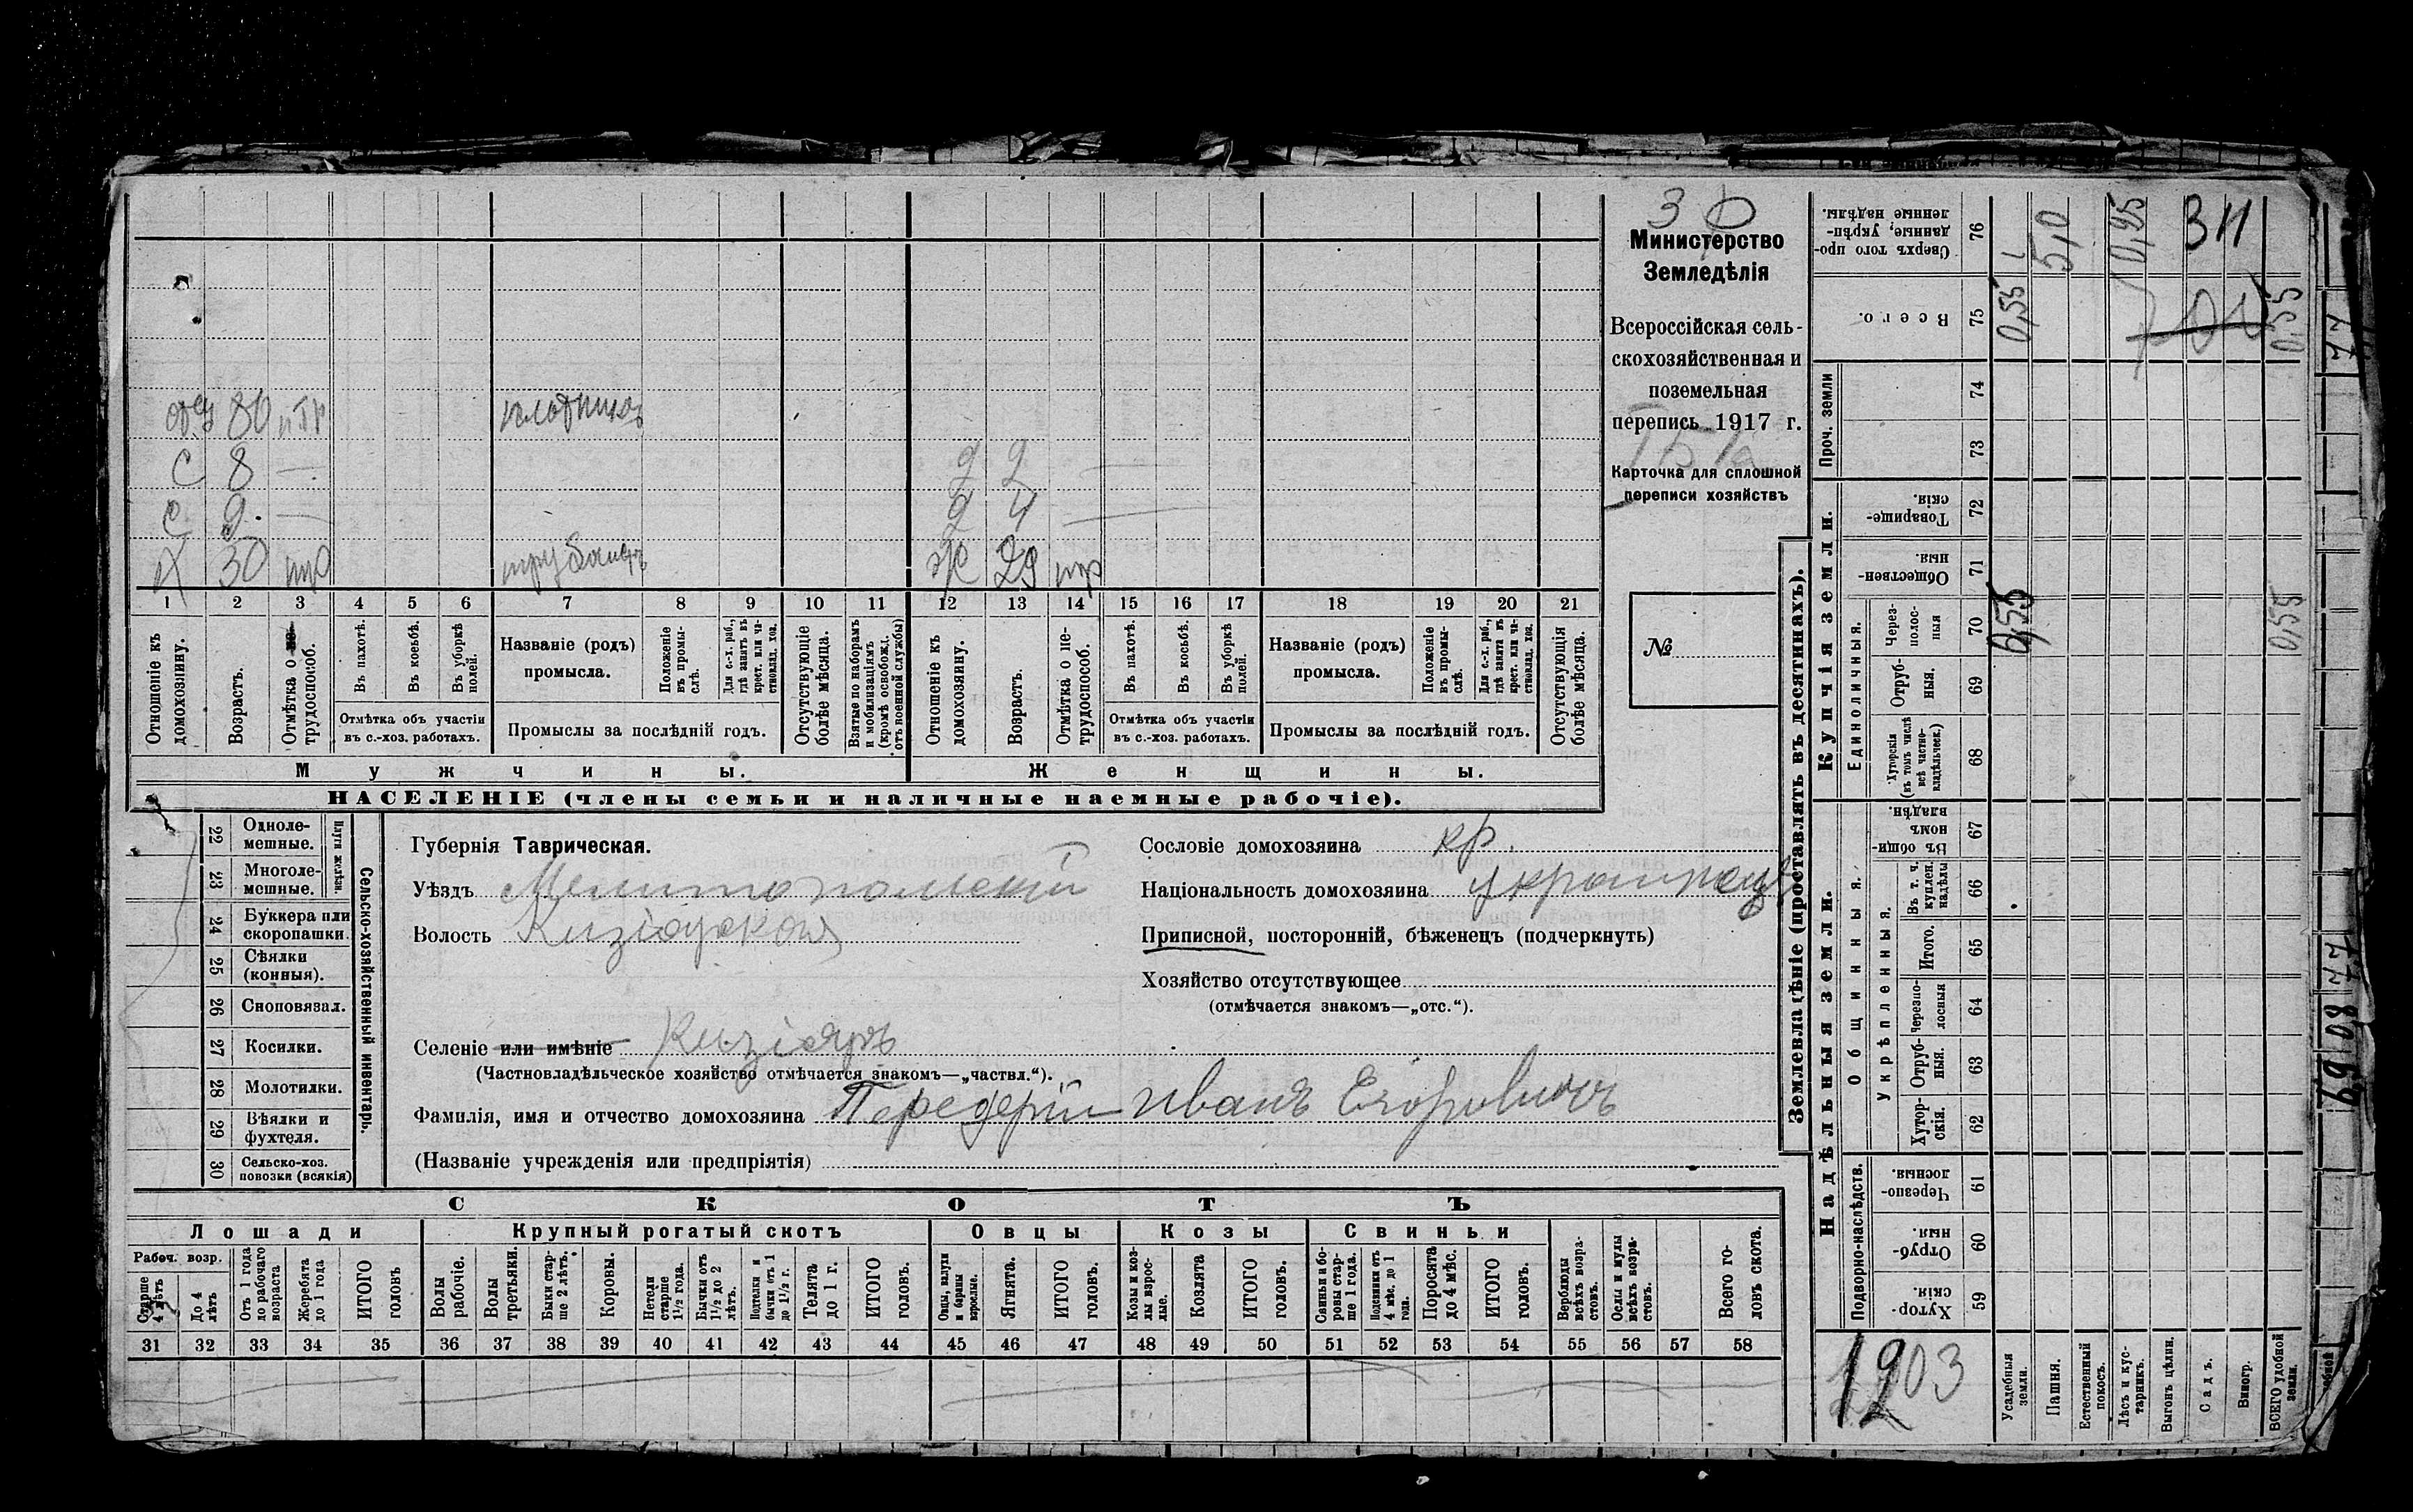 отец 80 плотникъ
С 8 —
д 2 —
С 9 —
д 4 —
Х 30
ж 29
1 2 3 4 5 6 7 8 9 10 11 12 13 14 15 16 17 18 19 20 21
Отношеніе къ домохозяину.
Возрастъ.
Отмѣтка о не-трудоспособ.
Въ пахотѣ.
Въ косьбѣ.
Въ уборкѣ полей.
Отмѣтка объ участіи
въ с.-хоз. работахъ.
Названіе (родъ)
промысла.
Положеніе въ промы-слѣ.
Для с.-х. раб., гдѣ занятъ въ крест. или ча-стновлад. хоз.
Промыслы за послѣдній годъ.
Отсутствующіе болѣе мѣсяца.
Взятые по наборамъ и мобилизаціямъ (кромѣ освобожд. отъ военной службы)
Отношеніе къ домохозяину.
Возрастъ.
Отмѣтка о не-трудоспособ.
Въ пахотѣ.
Въ косьбѣ.
Въ уборкѣ полей.
Отмѣтка объ участіи
въ с.-хоз. работахъ.
Названіе (родъ)
промысла.
Положеніе въ промы-слѣ.
Для с.-х. раб., гдѣ занята въ крест. или ча-стновлад. хоз.
Промыслы за послѣдній годъ.
Отсутствующія болѣе мѣсяца.
Мужчины.
Женщины.
НАСЕЛЕНІЕ (члены семьи и наличные наемные рабочіе).
30
Министерство
Земледѣлія
Всероссійская сель-
скохозяйственная и
поземельная
перепись 1917 г.
Карточка для сплошной
переписи хозяйствъ
№
22 Одноле-мешные.
23 Многоле-мешные.
Плуги желѣзн.
24 Буккера или скоропашки.
25 Сѣялки (конныя).
26 Сноповязал.
27 Косилки.
28 Молотилки.
29 Вѣялки и фухтеля.
30 Сельско-хоз. повозки (всякія)
Сельско-хозяйственный инвентарь.
Губернія Таврическая.
Уѣздъ Мелитопольскій
Волость Кизіярская
Селеніе или имѣніе Кизіяръ
(Частновладѣльческое хозяйство отмѣчается знакомъ—„частвл.“).
Фамилія, имя и отчество домохозяина Передерій Иванъ Егоровичъ
(Названіе учрежденія или предпріятія)
Сословіе домохозяина кр.
Національность домохозяина украинецъ
Приписной, посторонній, бѣженецъ (подчеркнуть)
Хозяйство отсутствующее
(отмѣчается знакомъ—„отс.“).
СКОТЪ
Лошади
Крупный рогатый скотъ
Овцы
Козы
Свиньи
Рабоч. возр.
Старше 4 лѣтъ
До 4 лѣтъ
Отъ 1 года до рабочаго возраста
Жеребята до 1 года
ИТОГО головъ
Волы рабочіе.
Волы третьяки.
Быки стар-ше 2 лѣтъ.
Коровы.
Нетели старше 1½ года.
Бычки отъ 1½ до 2 лѣтъ.
Подтелки и бычки отъ 1 до 1½ г.
Телята до 1 г.
ИТОГО головъ.
Овцы, валухи и бараны взрослые.
Ягнята.
ИТОГО головъ.
Козы и коз-лы взрос-лые.
Козлята
ИТОГО головъ.
Свиньи и бо-ровы стар-ше 1 года.
Подсвинки отъ 4 мѣс. до 1 года.
Поросята до 4 мѣс.
ИТОГО головъ.
Верблюды всѣхъ возра-стовъ.
Ослы и мулы всѣхъ возра-стовъ.
Всего го-ловъ скота.
31 32 33 34 35 36 37 38 39 40 41 42 43 44 45 46 47 48 49 50 51 52 53 54 55 56 57 58
Землевладѣніе (проставлять въ десятинахъ).
Надѣльныя земли.
Купчія земли.
Проч. земли
Подворно-наслѣдств.
Общинныя.
Укрѣпленныя.
Единоличныя.
59 Хутор-скія.
60 Отруб-ныя.
61 Черезпо-лосныя.
62 Хутор-скія.
63 Отруб-ныя.
64 Черезпо-лосныя
65 Итого.
66 Въ т. ч. куплен. надѣлы
67 Въ общин-номъ владѣн.
68 Хуторскія (въ томъ числѣ всѣ частно-владѣльческ.)
69 Отруб-ныя.
70 Через-полос-ныя
71 Обществен-ныя.
72 Товарище-скія.
73
74
75 Всего.
76 Сверхъ того про-данные, укрѣп-ленные надѣлы.
0,55
0,55
5,0
0,55
0,55
1903
Усадебныя земли.
Пашня.
Естественный покосъ.
Лѣсъ и кус-тарникъ.
Выгонъ цѣлин.
Садъ.
Виногр.
ВСЕГО удобной земли.
77